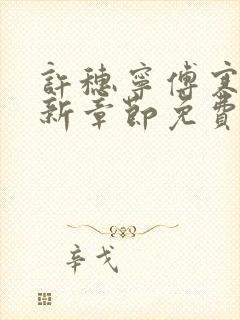 許穗寧傅寒
新章節免費
辛戈